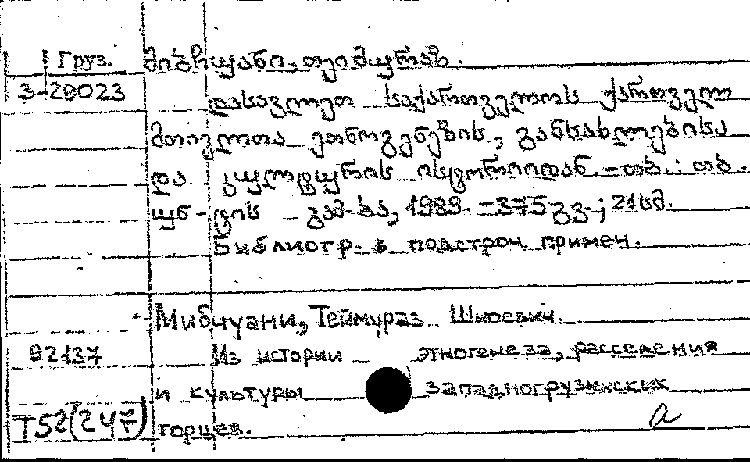 Груз. მიბჩუანი, თეიმურაზ.
3-29023 დასავლეთ საქართველოს ქართველ
მთიელთა ეთნოგენეზის, განსახლებისა
და კულტურის ისტორიიდან. - თბ.: თბ.
უნ-ტის გამ-ბა, 1989. - 375 გვ.; 21 სმ.
Библиогр. в подстроч. примеч.
Мибчуани, Теймураз Шиоевич.
92137 Из истории этногенеза, расселения
и культуры западногрузинских
Т52(247) горцев. а